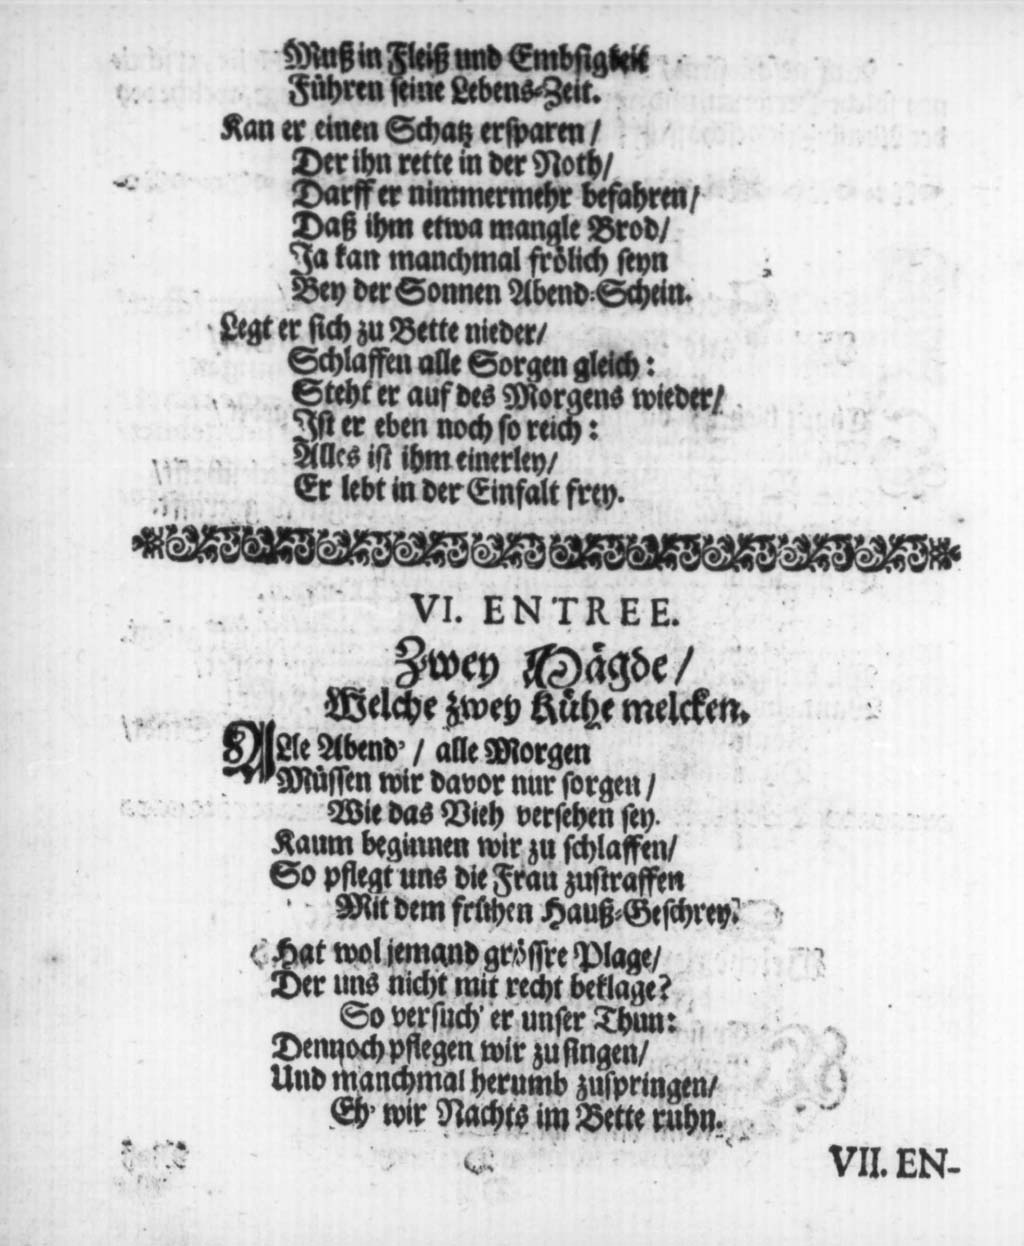 Muß in Fleiß und Embsigkeit
Führen seine Lebens-Zeit.
Kan er einen Schatz ersparen /
Der ihn rette in der Noth/
Darff er nimmermehr befahren/
Daß ihm etwa mangle Brod/
Ja kan manchmal frölich seyn
Bey der Sonnen Abend-Schein.
Legt er sich zu Bette nieder/
Schlaffen alle Sorgen gleich:
Steht er auf des Morgens wieder/
Ist er eben noch so reich:
Alles ist ihm einerley/
Er lebt in der Einfalt frey.
VI. ENTREE.
Zwey Mägde/
Welche zwey Kühe melcken.
ALle Abend' / alle Morgen
Müssen wir davor nur sorgen /
Wie das Vieh versehen sey.
Kaum beginnen wir zu schlaffen/
So pflegt uns die Frau zustraffen
Mit dem frühen Hauß-Geschrey.
Hat wol jemand grössre Plage/
Der uns nicht mit recht beklage?
So versuch' er unser Thun:
Dennoch pflegen wir zu singen/
Und manchmal herumb zuspringen/
Eh' wir Nachts im Bette ruhn.
VII. EN-